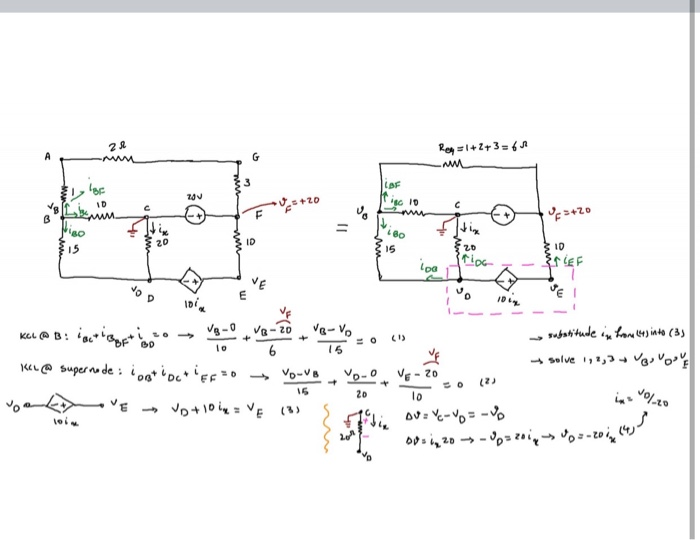 2Ω
A
G
1
i_BF
3
20V
v_F=+20
v_B
i_BC
10
C
F
B
i_BD
15
i_x
20
10
v_D
D
10i_x
E
v_E
=
R_eq=1+2+3=6Ω
i_BF
i_BC
10
C
v_F=+20
v_B
i_BD
i_x
15
20
10
i_DB
i_DC
i_EF
v_D
10i_x
v_E
KCL@B: i_BC+i_BF+i_BD=0 → (v_B-0)/10 + (v_B-20)/6 + (v_B-v_D)/15 = 0 (1)
v_F
→ substitude i_x from (4) into (3)
→ solve 1,2,3 → v_B, v_D, v_E
KCL@ supernode: i_DB+i_DC+i_EF=0 → (v_D-v_B)/15 + (v_D-0)/20 + (v_E-20)/10 = 0 (2)
v_F
v_D
10i_x
v_E → v_D+10i_x=v_E (3)
C
20Ω
i_x
v_D
ΔV=v_C-v_D=-v_D
ΔV=i_x20 → -v_D=20i_x → v_D=-20i_x (4)
i_x=v_D/-20